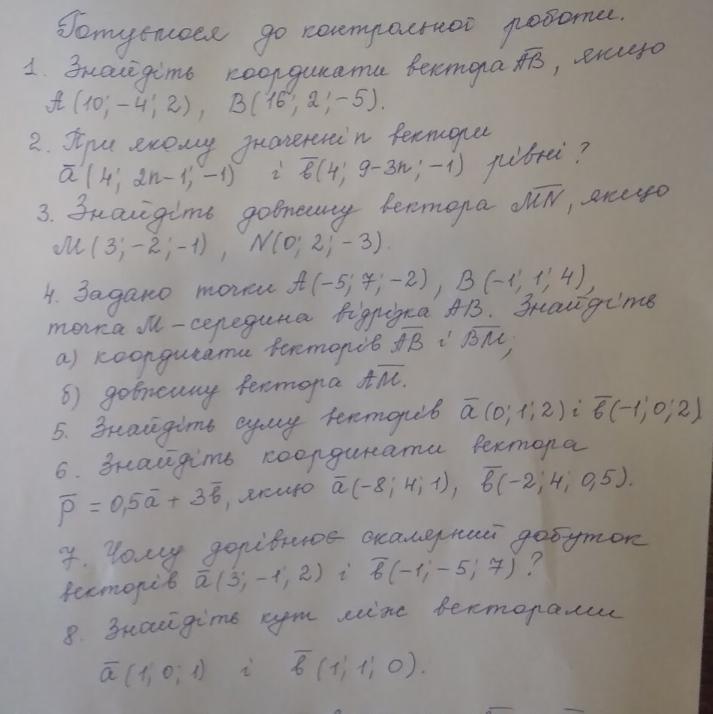 Готуємося до контрольної роботи.
1. Знайдіть координати вектора A̅B̅, якщо
A(10; -4; 2), B(16; 2; -5).
2. При якому значенні n вектори
a̅(4; 2n-1; -1) і b̅(4; 9-3n; -1) рівні?
3. Знайдіть довжину вектора M̅N̅, якщо
M(3; -2; -1), N(0; 2; -3).
4. Задано точки A(-5; 7; -2), B(-1; 1; 4),
точка M - середина відрізка AB. Знайдіть
а) координати векторів A̅B̅ і B̅M̅;
б) довжину вектора A̅M̅.
5. Знайдіть суму векторів a̅(0; 1; 2) і b̅(-1; 0; 2)
6. Знайдіть координати вектора
p̅ = 0,5a̅ + 3b̅, якщо a̅(-8; 4; 1), b̅(-2; 4; 0,5).
7. Чому дорівнює скалярний добуток
векторів a̅(3; -1; 2) і b̅(-1; -5; 7)?
8. Знайдіть кут між векторами
a̅(1; 0; 1) і b̅(1; 1; 0).